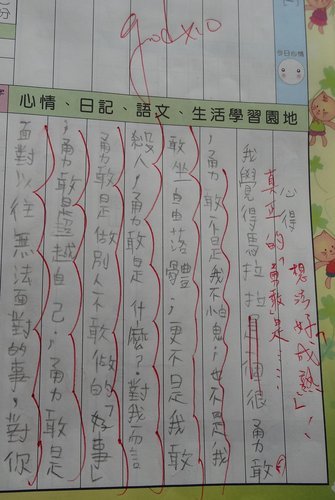 good x10
今日心情
心情、日記、語文、生活學習園地
心得
真正的「勇敢」是……
想法好成熟！
我覺得馬拉拉是一個很勇敢
，勇敢不是我不怕鬼；也不是我
敢坐自由落體；更不是我敢
殺人，勇敢是什麼？對我而言
勇敢是做別人不敢做的「好事」
，勇敢是超越自己，勇敢是
面對以往無法面對的事，對你